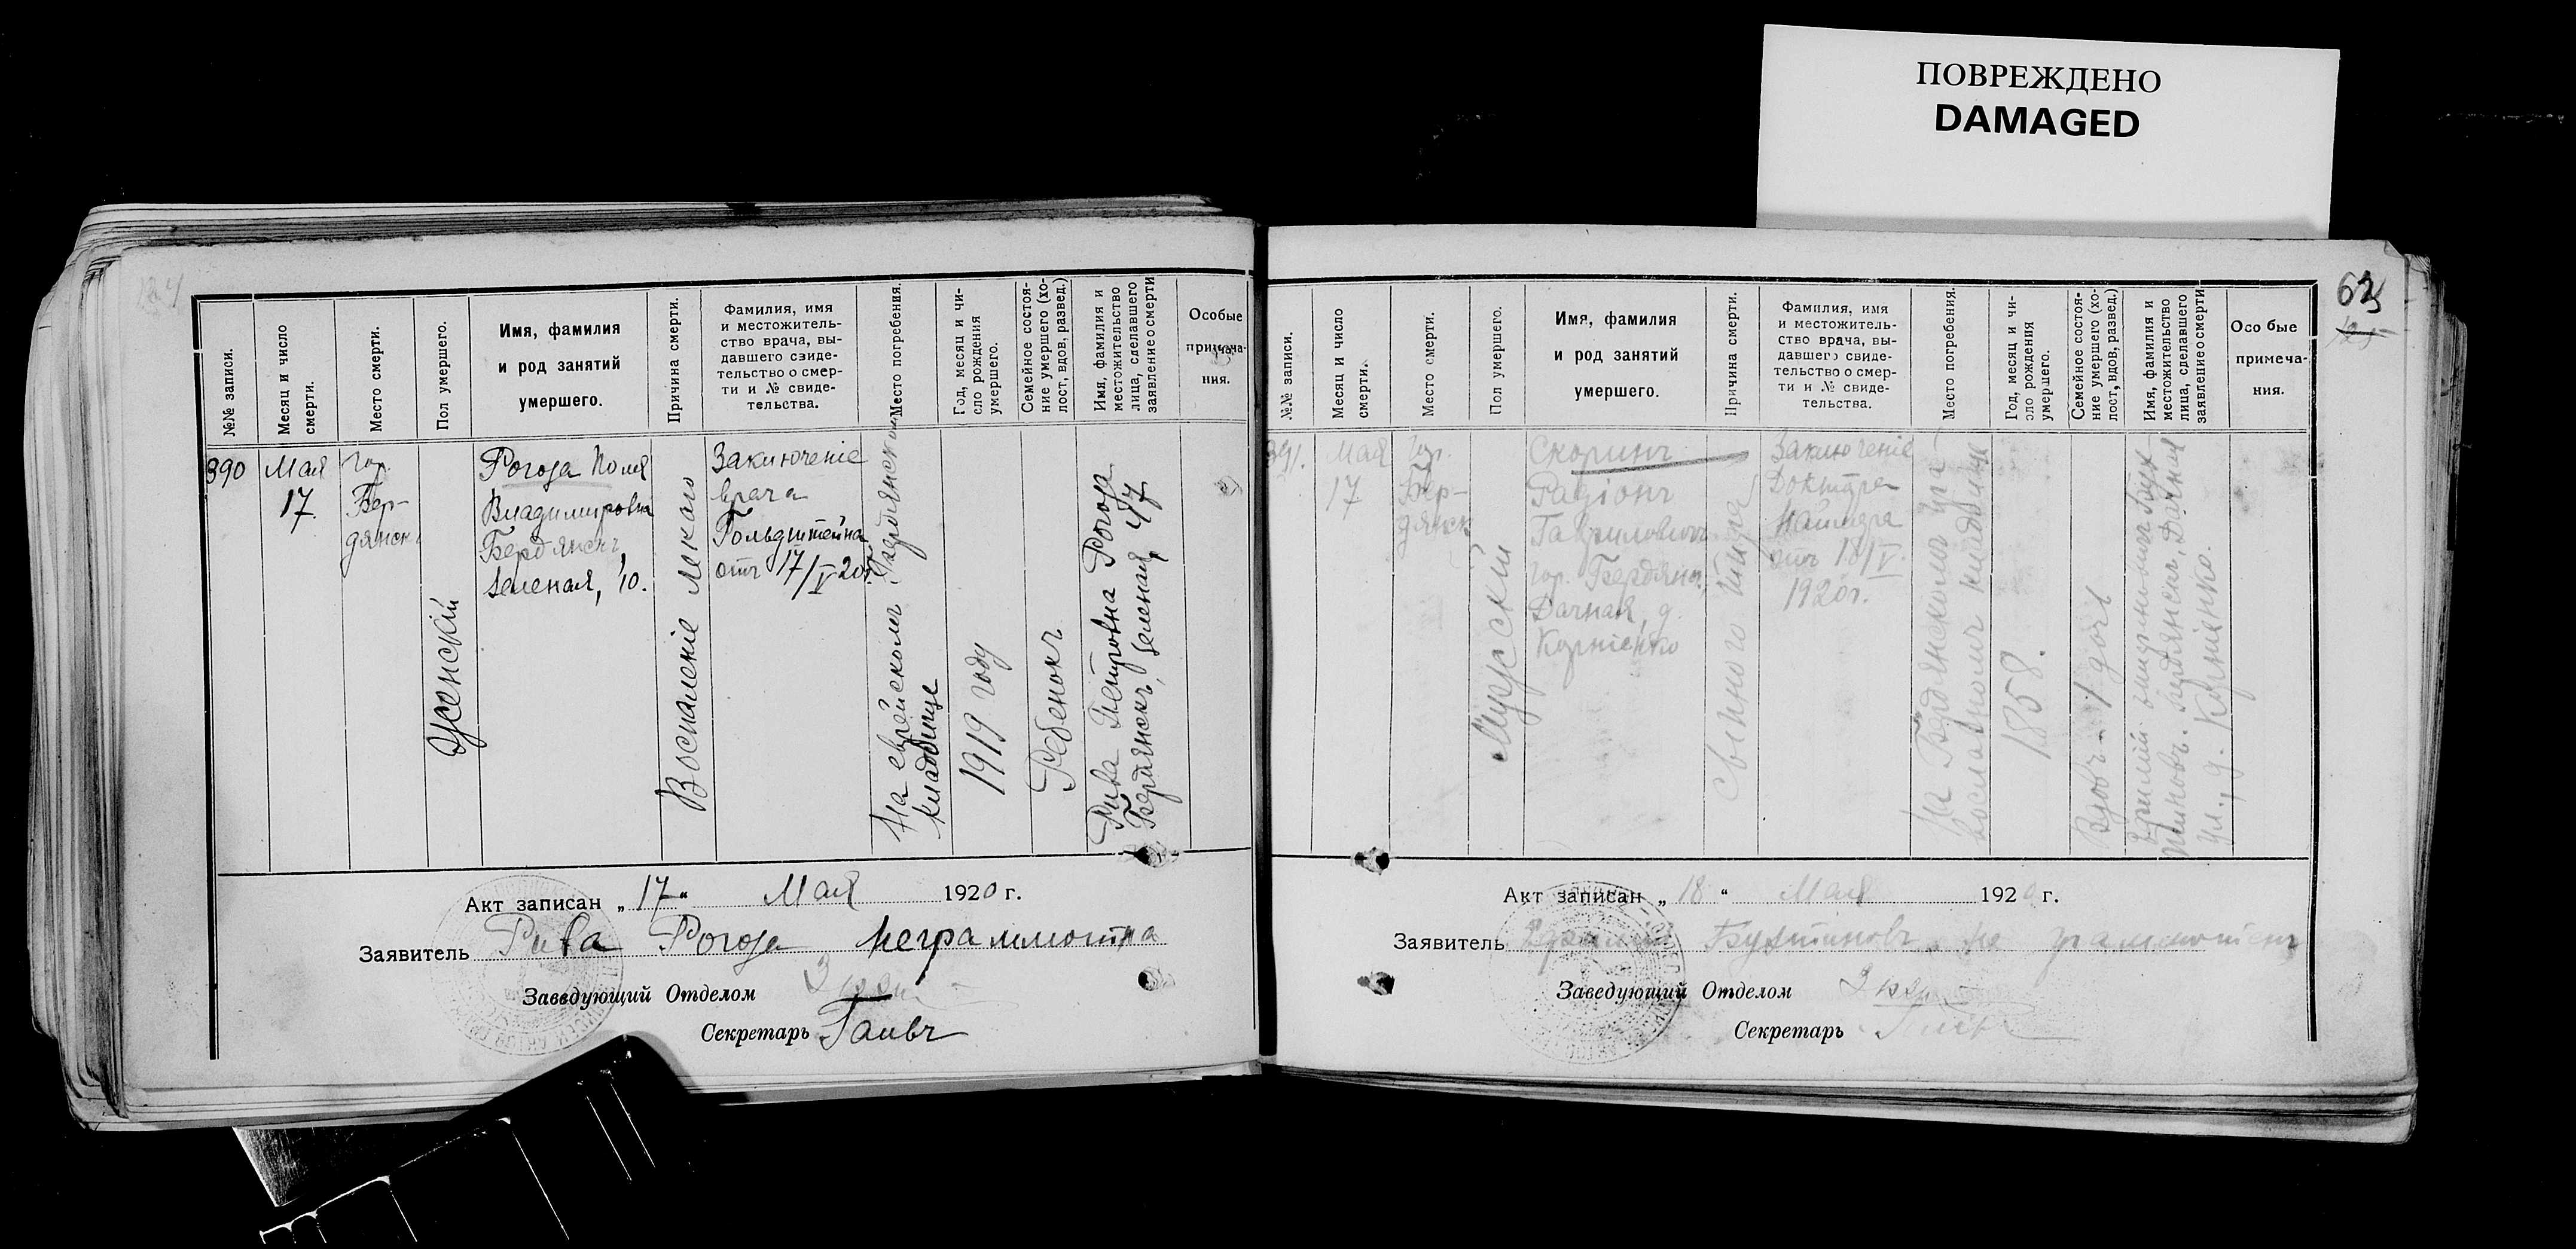 ПОВРЕЖДЕНО
DAMAGED
№№ записи.
Месяц и число
смерти.
Место смерти.
Пол умершего.
Имя, фамилия
и род занятий
умершего.
Причина смерти.
Фамилия, имя
и местожитель-
ство врача, вы-
давшего свиде-
тельство о смер-
ти и № свиде-
тельства.
Место погребения.
Год, месяц и чи-
сло рождения
умершего.
Семейное состоя-
ние умершего (хо-
лост, вдов, развед.)
Имя, фамилия и
местожительство
лица, сделавшего
заявление о смерти
Особые
примеча-
ния.
390
Мая
17.
гор.
Бер-
дянск
Женскій
Рогоза Поля
Владимировна
Бердянскъ,
Зеленая, 10.
Воспаленіе легкаго
Заключеніе
врача
Гольдштейна
отъ 17/V 20г.
На еврейскомъ Бердянскомъ
кладбище
1919 году
Ребенокъ
Рива Петровна Рогоза
Бердянскъ, Зеленая, 47
Акт записан „17“ Мая 1920 г.
Заявитель Рива Рогоза неграммотна
Заведующий Отделом
Секретарь
63
№№ записи.
Месяц и число
смерти.
Место смерти.
Пол умершего.
Имя, фамилия
и род занятий
умершего.
Причина смерти.
Фамилия, имя
и местожитель-
ство врача, вы-
давшего свиде-
тельство о смер-
ти и № свиде-
тельства.
Место погребения.
Год, месяц и чи-
сло рождения
умершего.
Семейное состоя-
ние умершего (хо-
лост, вдов, развед.)
Имя, фамилия и
местожительство
лица, сделавшего
заявление о смерти
Особые
примеча-
ния.
391.
Мая
17
гор.
Бер-
дянск
Мужской
Скоринъ
Радіонъ
Гавриловичъ
гор. Бердянс.
Дачная, д.
Корніенко
Сыпного тифа
Заключеніе
Доктора
отъ 18/V.
1920г.
На Бердянскомъ
кладбище
1858.
Вдовъ - 1 дочь
Бердянскъ, Дачная
ул., д. Корніенко.
Акт записан „18“ Мая 1920 г.
Заявитель Бухтіиновъ не грамотенъ
Заведующий Отделом
Секретарь